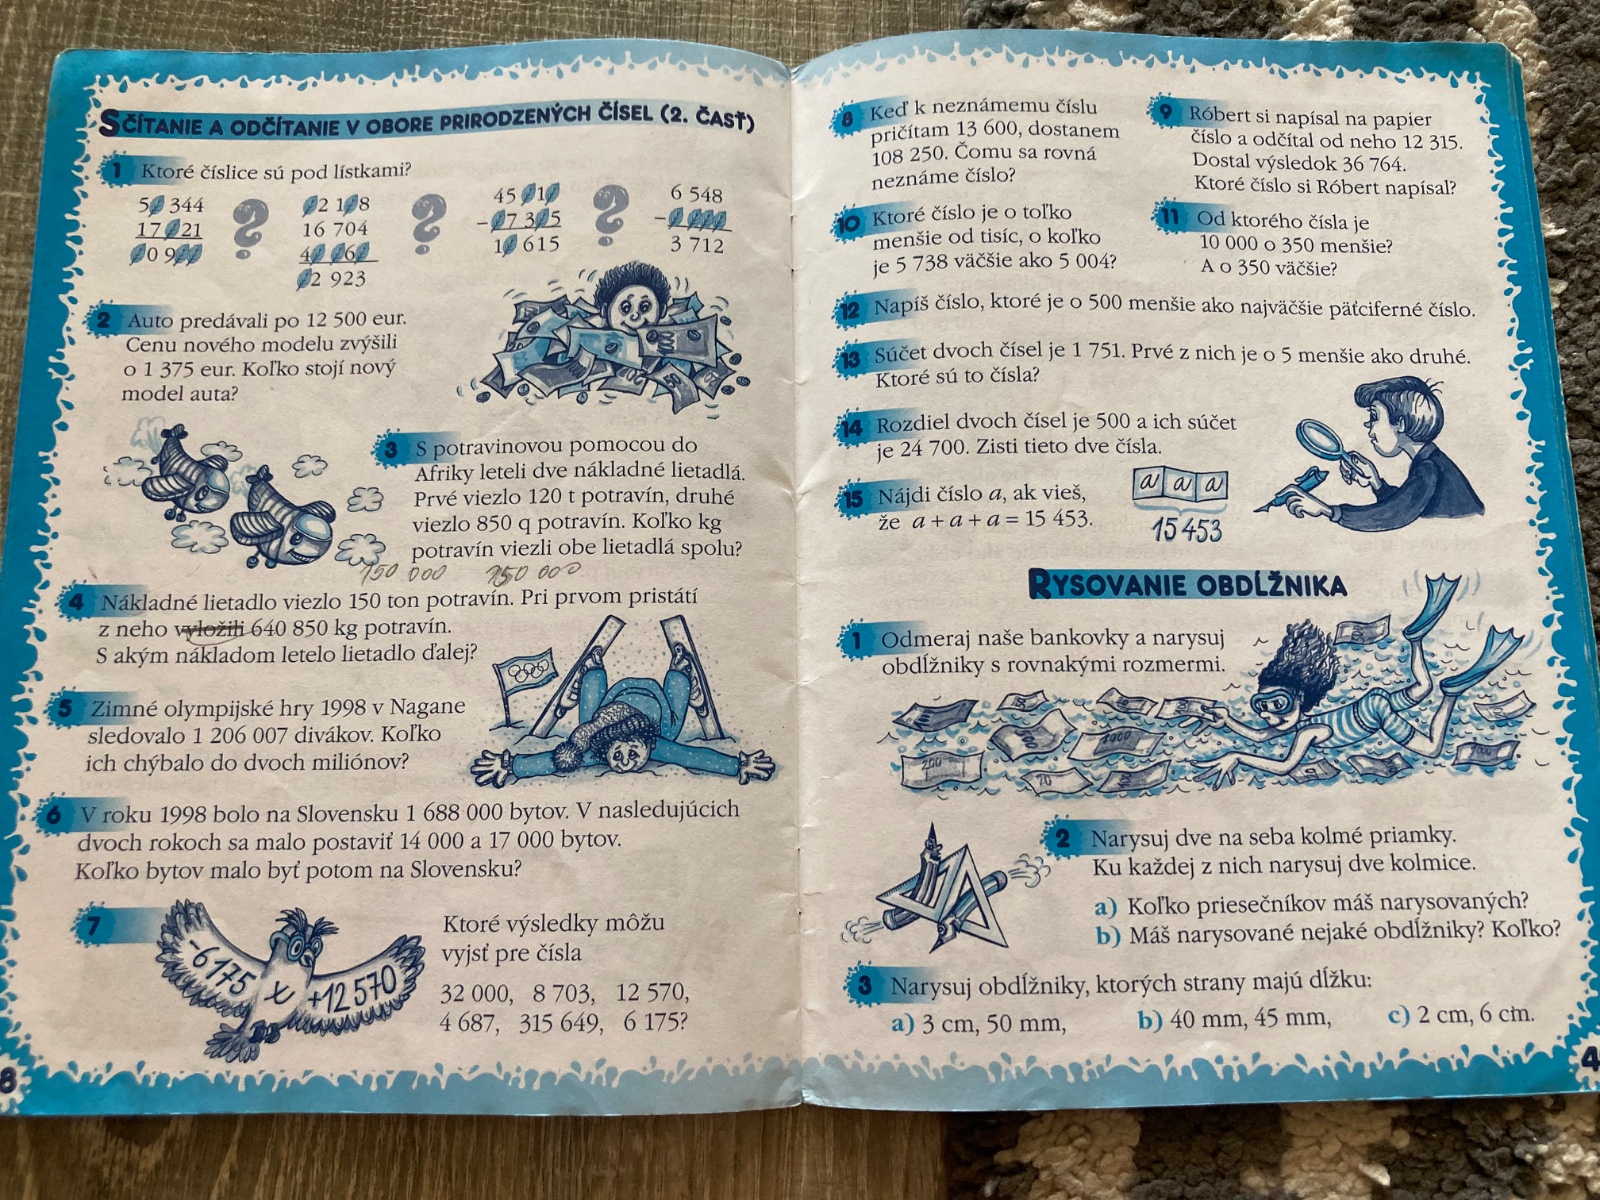 SČÍTANIE A ODČÍTANIE V OBORE PRIRODZENÝCH ČÍSEL (2. ČASŤ)
1 Ktoré číslice sú pod lístkami?
5 344
17 21
0 9
?
2 1 8
16 704
4 6
2 923
?
45 1
- 7 3 5
1 615
?
6 548
-
3 712
2 Auto predávali po 12 500 eur.
Cenu nového modelu zvýšili
o 1 375 eur. Koľko stojí nový
model auta?
3 S potravinovou pomocou do
Afriky leteli dve nákladné lietadlá.
Prvé viezlo 120 t potravín, druhé
viezlo 850 q potravín. Koľko kg
potravín viezli obe lietadlá spolu?
150 000 150 000
4 Nákladné lietadlo viezlo 150 ton potravín. Pri prvom pristátí
z neho vyložili 640 850 kg potravín.
S akým nákladom letelo lietadlo ďalej?
5 Zimné olympijské hry 1998 v Nagane
sledovalo 1 206 007 divákov. Koľko
ich chýbalo do dvoch miliónov?
6 V roku 1998 bolo na Slovensku 1 688 000 bytov. V nasledujúcich
dvoch rokoch sa malo postaviť 14 000 a 17 000 bytov.
Koľko bytov malo byť potom na Slovensku?
7 Ktoré výsledky môžu
vyjsť pre čísla
32 000, 8 703, 12 570,
4 687, 315 649, 6 175?
-6175 x +12 570
8
8 Keď k neznámemu číslu
pričítam 13 600, dostanem
108 250. Čomu sa rovná
neznáme číslo?
9 Róbert si napísal na papier
číslo a odčítal od neho 12 315.
Dostal výsledok 36 764.
Ktoré číslo si Róbert napísal?
10 Ktoré číslo je o toľko
menšie od tisíc, o koľko
je 5 738 väčšie ako 5 004?
11 Od ktorého čísla je
10 000 o 350 menšie?
A o 350 väčšie?
12 Napíš číslo, ktoré je o 500 menšie ako najväčšie päťciferné číslo.
13 Súčet dvoch čísel je 1 751. Prvé z nich je o 5 menšie ako druhé.
Ktoré sú to čísla?
14 Rozdiel dvoch čísel je 500 a ich súčet
je 24 700. Zisti tieto dve čísla.
15 Nájdi číslo a, ak vieš,
že a + a + a = 15 453.
a a a
15 453
RYSOVANIE OBDĹŽNIKA
1 Odmeraj naše bankovky a narysuj
obdĺžniky s rovnakými rozmermi.
200
20
1000
2 Narysuj dve na seba kolmé priamky.
Ku každej z nich narysuj dve kolmice.
a) Koľko priesečníkov máš narysovaných?
b) Máš narysované nejaké obdĺžniky? Koľko?
3 Narysuj obdĺžniky, ktorých strany majú dĺžku:
a) 3 cm, 50 mm, b) 40 mm, 45 mm, c) 2 cm, 6 cm.
4